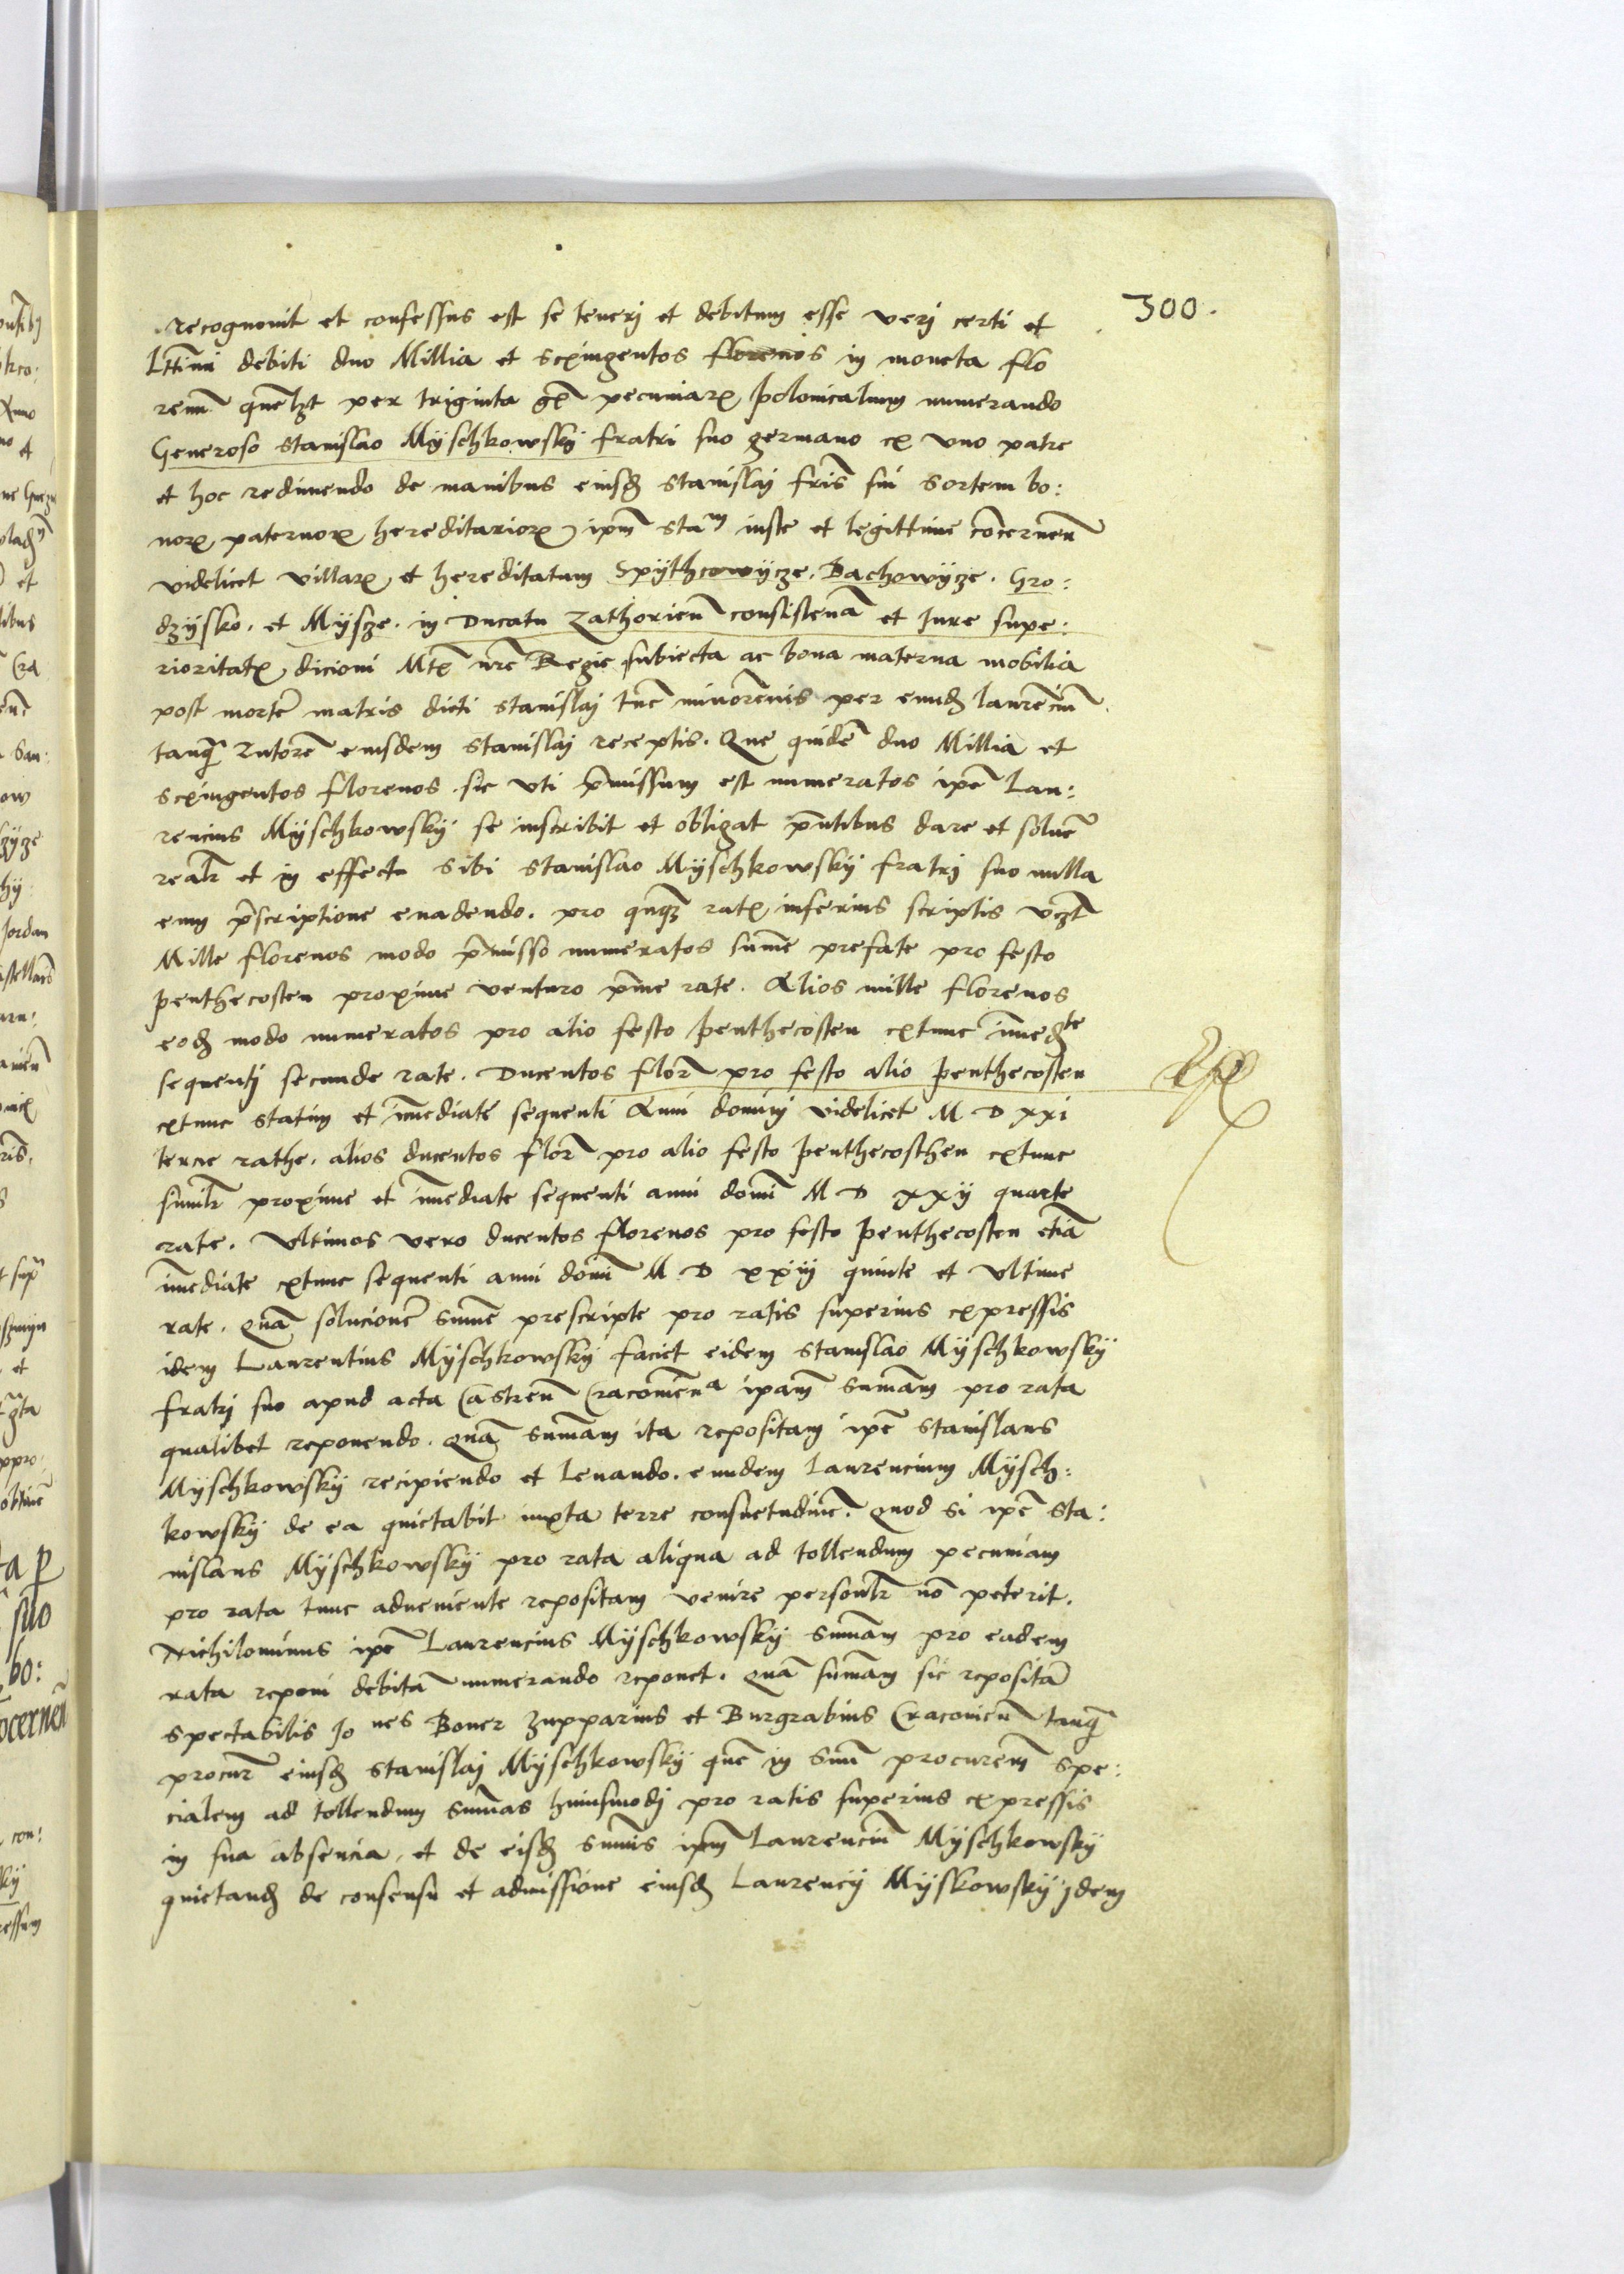 300.
recognovit et confessus est se tenerj et debitum esse verj certi et
lttīmi debiti duo Millia et sexingentos florenos in moneta flo
renū quēlꝫt per triginta gꝝ pecuniaꝝ polonicalium numerando
Generoso Stanislao Mÿschkowskÿ fratri suo germano ex vno patre
et hoc redimendo de manibus eiusđ Stanislaj frīs sui sortem bo:
noꝝ paternoꝝ hereditarioꝝ ipm̄ Staᵐ iuste et legittime cōcernen̄
videlicet villaꝝ et hereditatum Spÿthcowÿcze. Bachowÿze. Gro:
dzÿsko. et Mÿsze. in Ducatu Zathorien̄ consistenᵃ et Jure supe:
rioritatꝭ dicioni Mtꝭ nr̄e Regie subiecta ac bona materna mobilia
post mortē matris dicti Stanislaj tūc minorēnis per eundđ laurēciū
tanqꝫ Tutorē eiusdem Stanislaj receptis. Que quidē duo Millia et
sexingentos florenos sic vti p̄missum est numeratos ipē Lau:
rencius Mÿschkowskÿ se inscribit et obligat p̄ntibus dare et solue᷑
realr̄ et in effectu sibi Stanislao Mÿschkowskÿ fratrj suo nulla
eum p̄scriptione euadendo. pro qnqꝫ ratꝭ inferius scriptis vꝫt
Mille florenos modo p̄misso numeratos sume prefate pro festo
penthecosten proxime venturo pͥme rate. Alios mille florenos
eođ modo numeratos pro alio festo penthecosten extunc īmeđᵗᵉ
sequentj secunde rate. Ducentos flor̄ pro festo alio penthecosten
extunc statim et īmediate sequenti Anni dominj videlicet M D xxi
tercie rathe. alios ducentos flor̄ pro alio festo penthecosthen extunc
similr̄ proxime et īmediate sequenti anni domī M D xxij quarte
rate. Vltimos vero ducentos florenos pro festo penthecosten etiā
īmediate extunc sequenti anni domī M D xxiij quinte et vltime
rate. Quā solucionē sūme prescripte pro ratis superius expressis
idem Laurentius Mÿschkowskÿ faciet eidem Stanislao Mÿschkowskÿ
fratrj suo apud acta Castren̄ Cracouienᵃ ipam̄ sumām pro rata
qualibet reponendo. Quā sumām ita repositam ipē Stanislaus
Mÿschkowskÿ recipiendo et leuando. eundem Laurencium Mÿsch:
kowskÿ de ea quietabit iuxta terre consuetudinē. Quod si ipē Sta:
nislaus Mÿschkowskÿ pro rata aliqua ad tollendum pecuniam
pro rata tunc adueniente repositam venire personlr̄ nō poterit.
Nichilominus ipē Laurencius Mÿschkowskÿ sumām pro eadem
rata reponi debitā numerando reponet. Quā sumām sic repositā
spectabilis Joⁿᵉˢ Boner Zupparius et Burgrabius Cracouien̄ tanqꝫ
procur̄ eiusđ Stanislaj Mÿschkowskÿ quē in suū procurem̄ spe:
cialem ad tollendum sumās huiusmodj pro ratis superius expressis
in sua absencia, et de eisđ sumīs ipm̄ Laurenciū Mÿschkowskÿ
quietandđ de consensu et admissione eiusđ Laurencij Mÿskowskÿ jdem